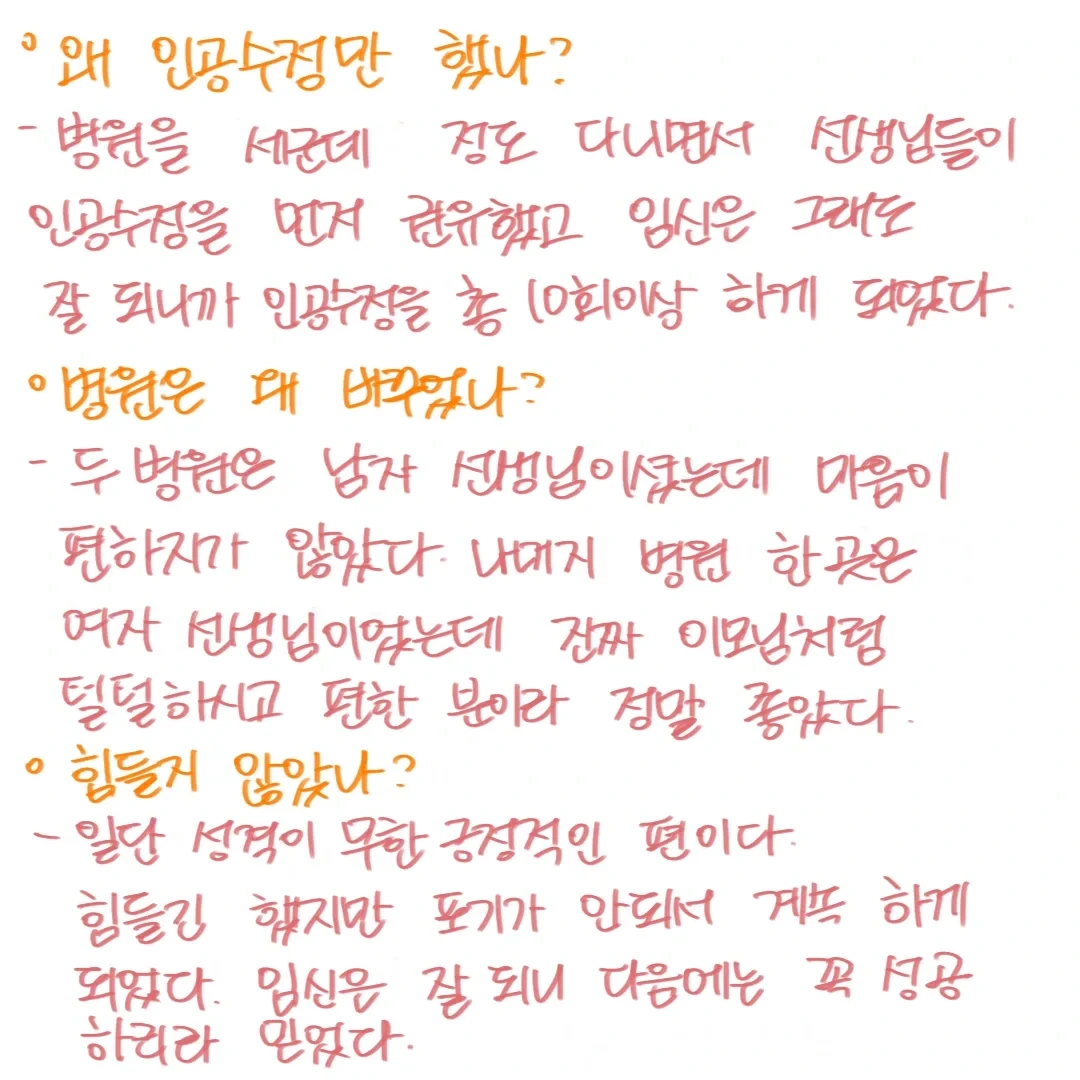 ° 왜 인공수정만 했나?
- 병원을 세군데 정도 다니면서 선생님들이
인공수정을 먼저 권유했고 임신은 그래도
잘 되니까 인공수정을 총 10회이상 하게 되었다.
° 병원은 왜 바꾸었나?
- 두 병원은 남자 선생님이셨는데 마음이
편하지가 않았다. 나머지 병원 한 곳은
여자 선생님이었는데 진짜 이모님처럼
털털하시고 편한 분이라 정말 좋았다.
° 힘들지 않았나?
- 일단 성격이 무한 긍정적인 편이다.
힘들긴 했지만 포기가 안되서 계속 하게
되었다. 임신은 잘 되니 다음에는 꼭 성공
하리라 믿었다.